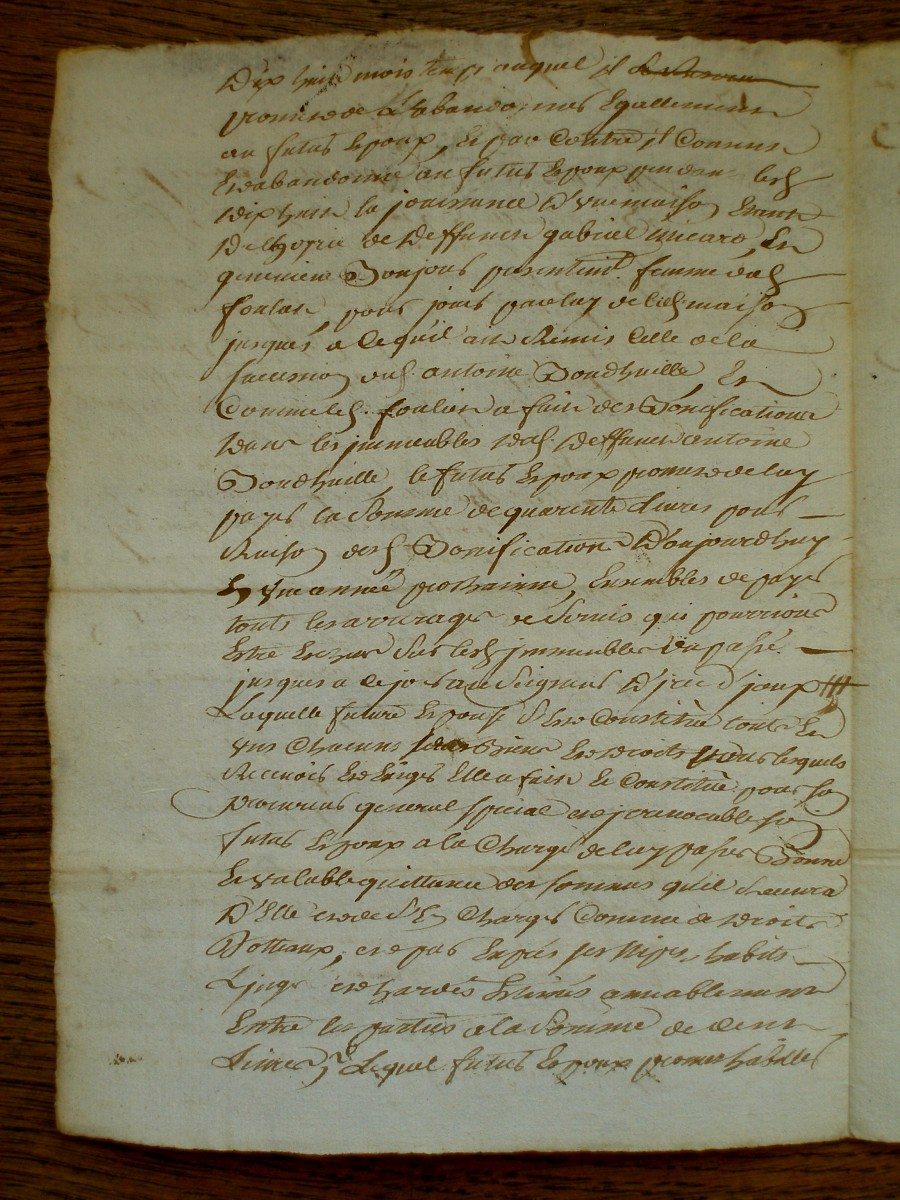 Dix huit mois temps auquel il
promet de l'abandonner Egallement
au futur Epoux, Et par Contre il Consent
Et abandonne au futur Epoux pendant lesd
dix huit la jouissance d'une maison Estant
De de Deffunct gabriel Et
genevieve Boujour femme dud
foulon pour jouir par luy de lad maison
jusques a ce qu'il ait Remis Celle de la
succession dud antoine Et
Comme led. foulon a fait des Bonifications
dans les jmmeubles dud Deffunct antoine
le futur Epoux promet de luy
payer la Somme de quarente Livres pour
Raison desd Bonifications D'aujourdhuy
En une année prochainne, Ensembles de payer
touts les arrerages de qui pourroint
Estre Sur lesd jmmeubles du passé
jusques a ce jour au Seigneur
Laquelle future Epouse S'Est Constitüé touts Et
uns Chacuns Biens Et droits pour lesquels
Recevoir Et Exiger Elle a fait Et Constitüé pour son
procureur general special et jrrevocable sond
futur Epoux a la Charge de luy passer Bonne
Et valable quittance des sommes qu'il Recevra
D'Elle et de S'En Charger Comme de droits
Dottaux, et par Exprés ses Nipes, habits
Linge et hardes Estimés amiablement
Entre les parties a la Somme de Cent
Livres Lequel futur Epoux promet habiller